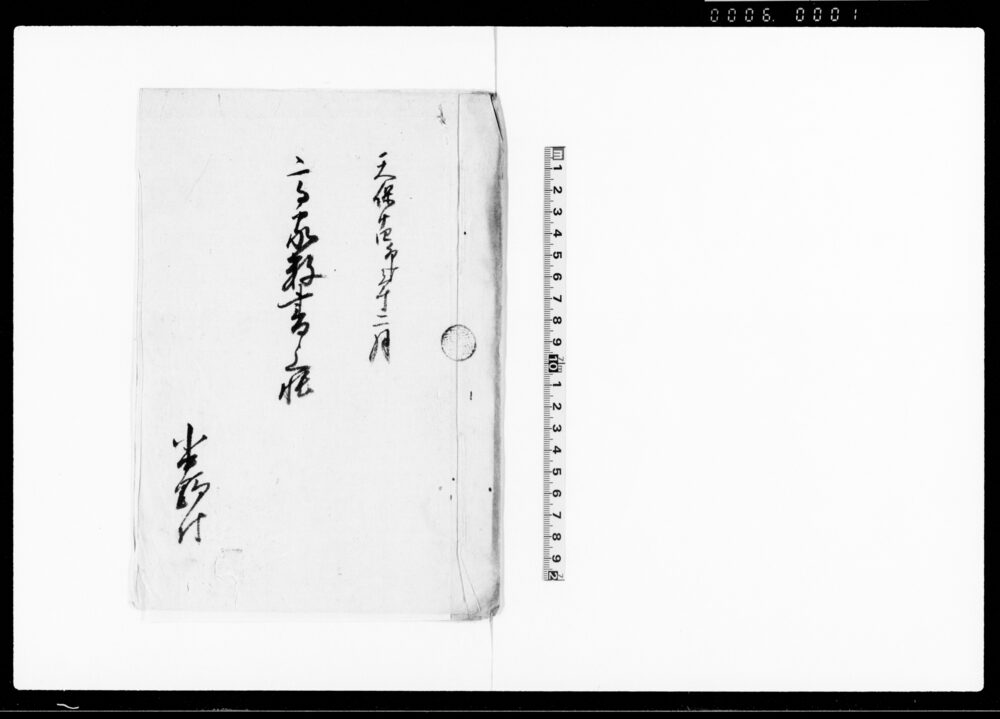 0006. 0001
天保十四卯年十二月
高家数書上帳
村
1 2 3 4 5 6 7 8 9 10 1 2 3 4 5 6 7 8 9 2